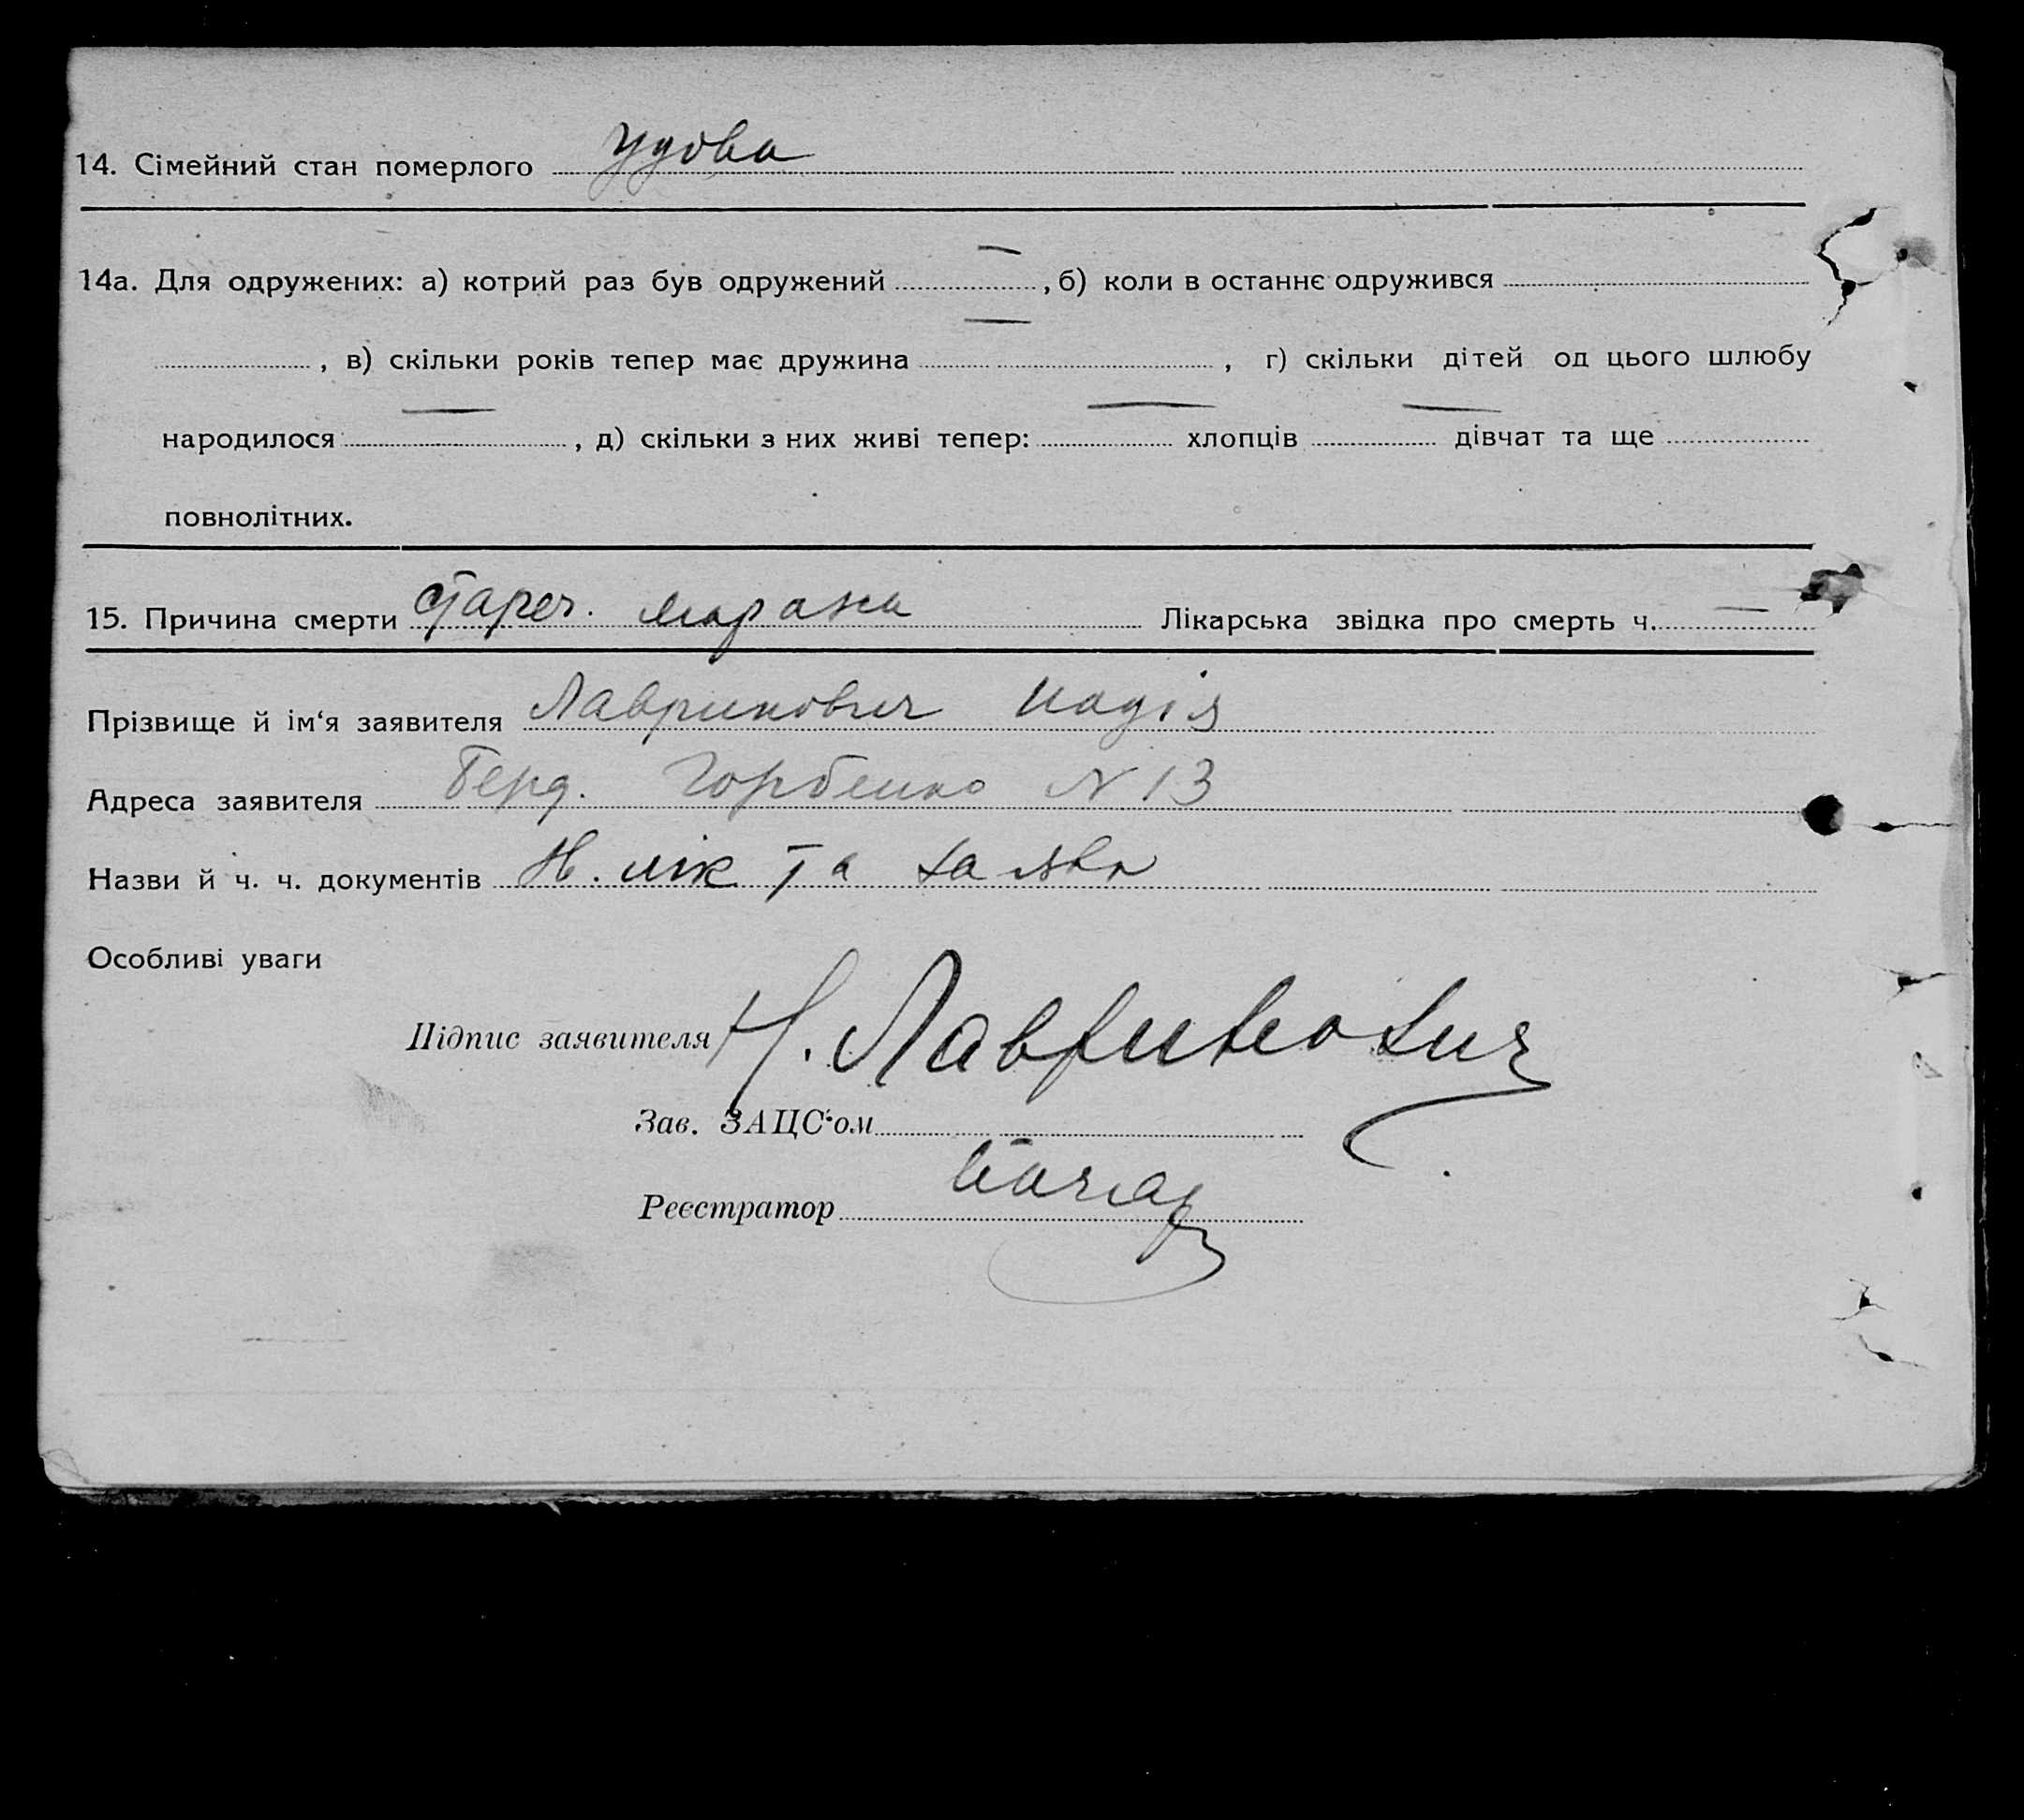 14. Сімейний стан померлого удова
14а. Для одружених: а) котрий раз був одружений —, б) коли в останнє одружився
, в) скільки років тепер має дружина —, г) скільки дітей од цього шлюбу
народилося —, д) скільки з них живі тепер: — хлопців — дівчат та ще
повнолітних.
15. Причина смерти Стареч. маразм Лікарська звідка про смерть ч. —
Прізвище й ім‘я заявителя Лавринович Надія
Адреса заявителя Берд. Горбенко N 13
Назви й ч. ч. документів лік та заява
Особливі уваги
Підпис заявителя Н. Лавринович
Зав. ЗАЦС‘ом
Реєстратор